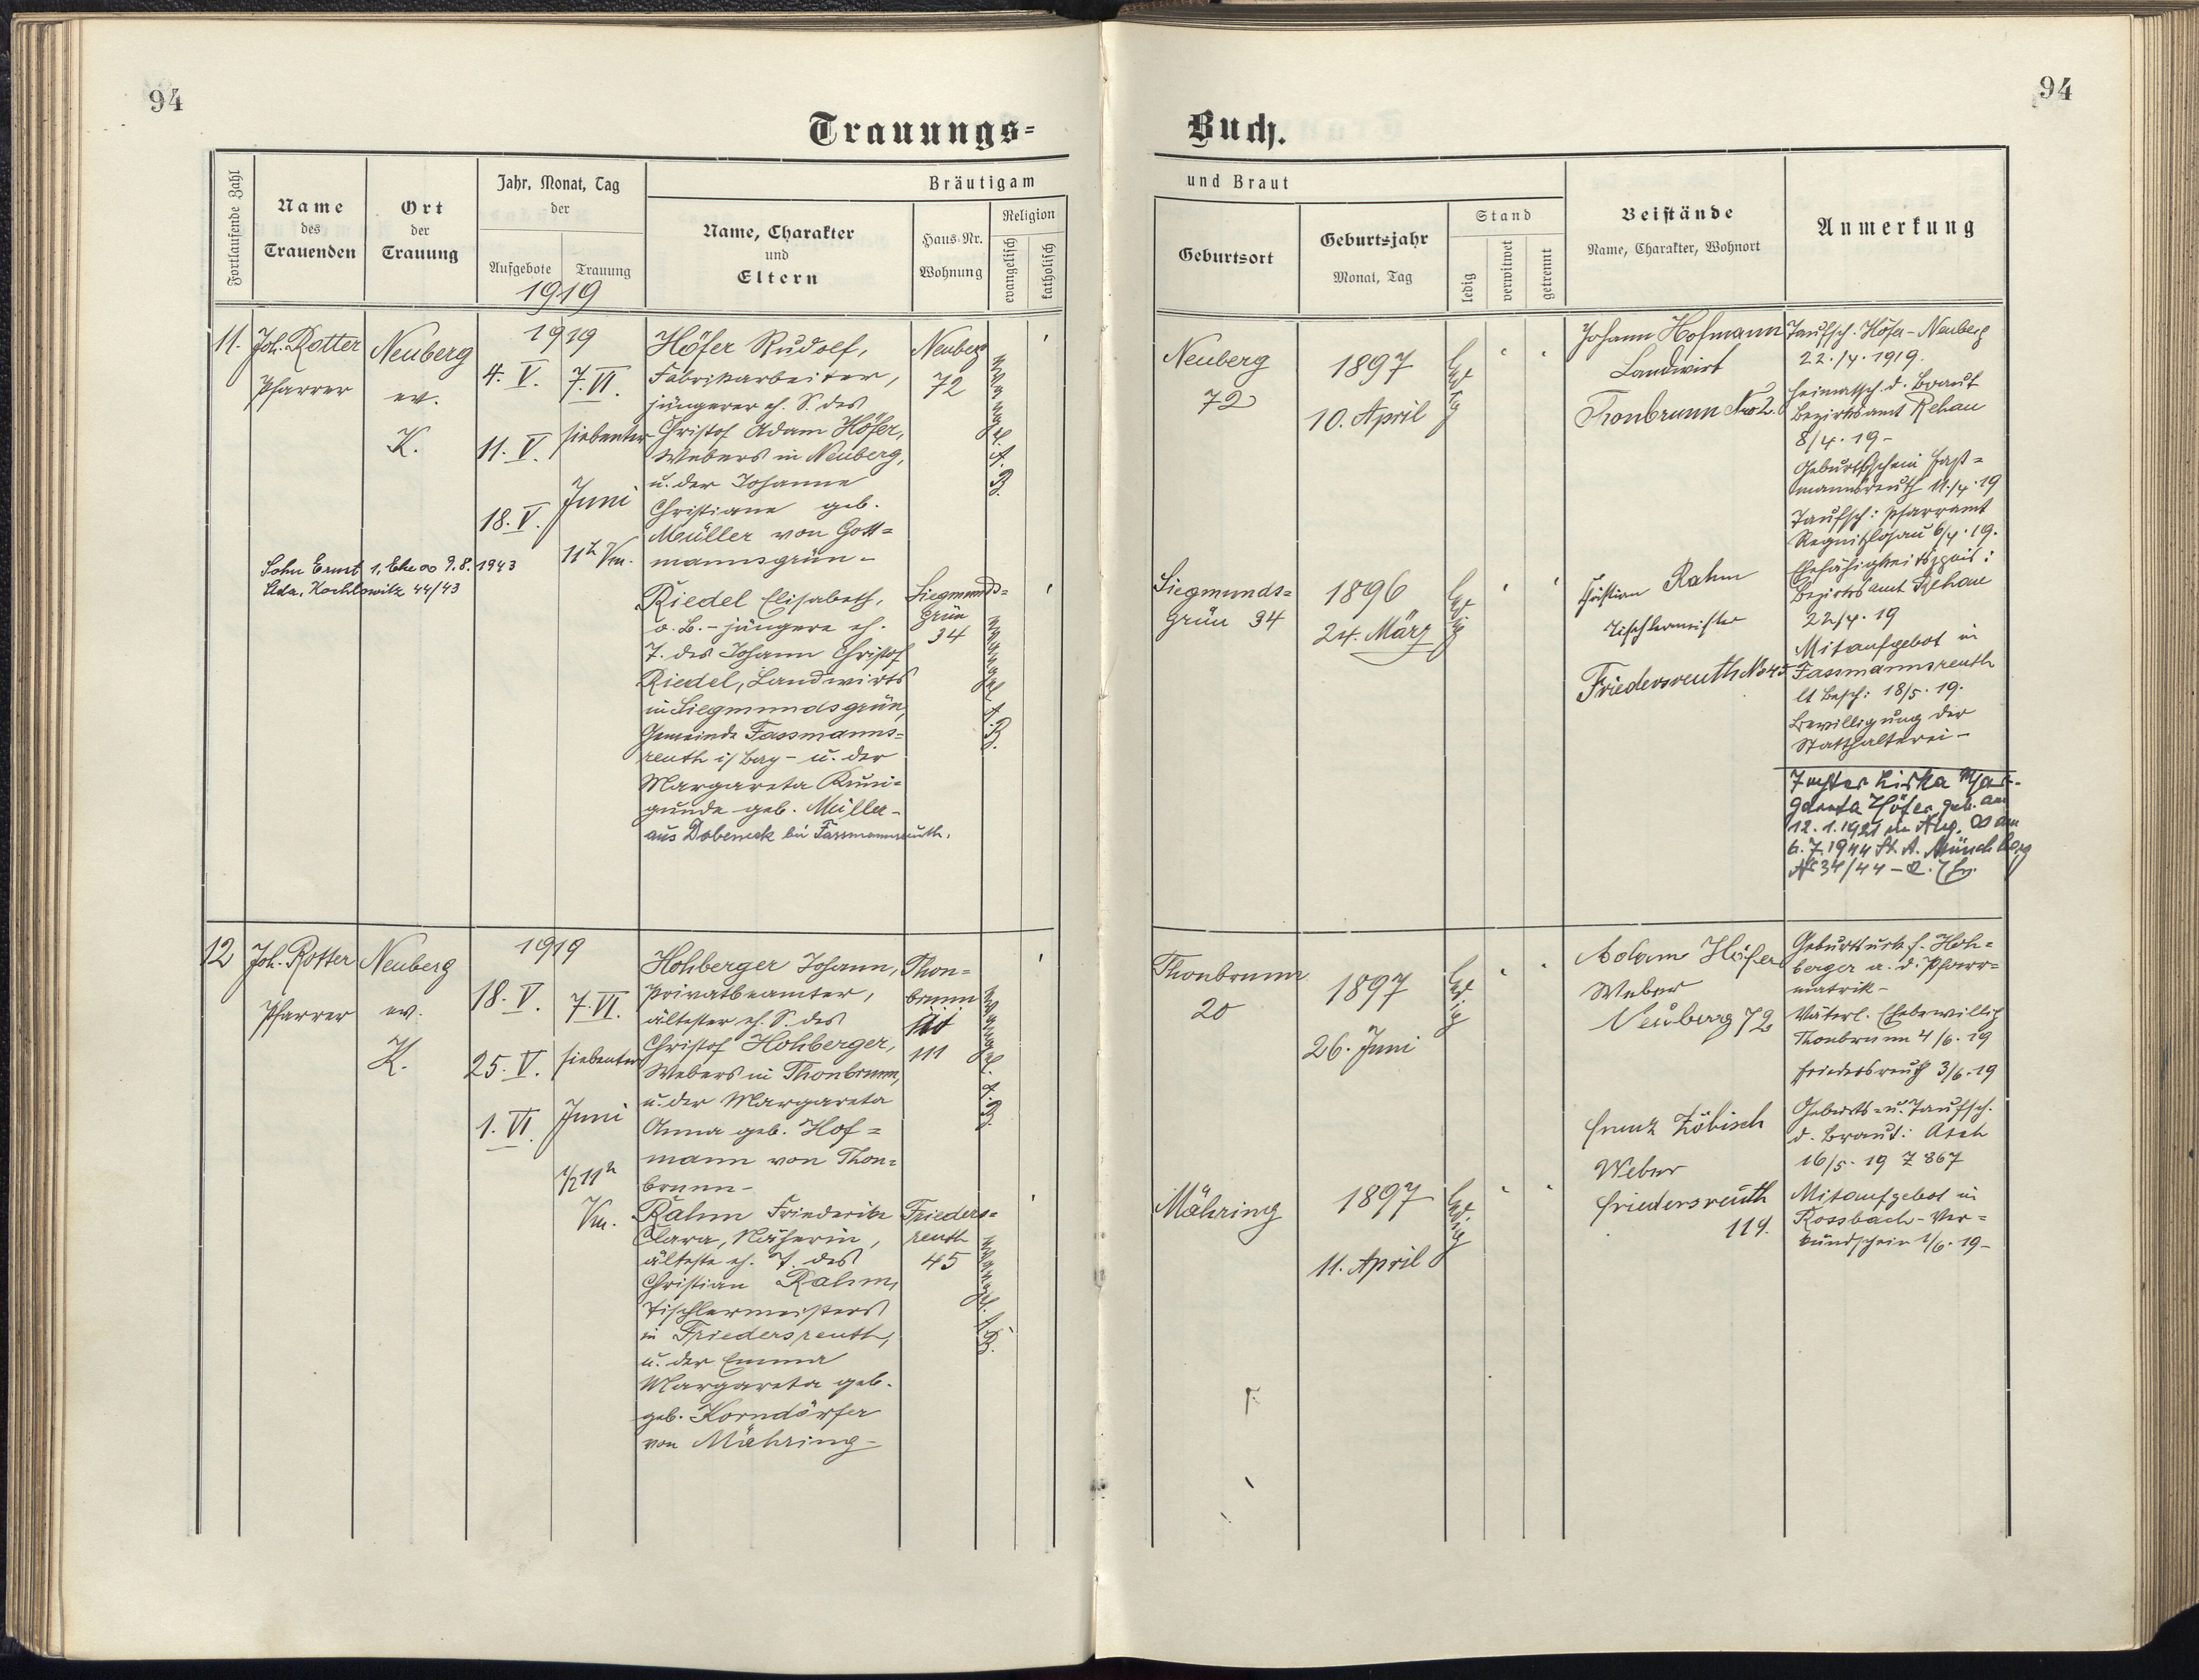 94
94
Trauungs-
Buch.
Fortlaufende Zahl
Name
des
Trauenden
Ort
der
Trauung
Jahr, Monat, Tag
der
Aufgebote
Trauung
1919
Bräutigam
Name, Charakter
und
Eltern
Haus-Nr.
Wohnung
Religion
evangelisch
katholisch
und Braut
Geburtsort
Geburtsjahr
Monat, Tag
Stand
ledig
verwitwet
getrennt
Beistände
Name, Charakter, Wohnort
Anmerkung
11.
Joh. Rotter
Pfarrer
Neuberg
ev.
K.
1919
4. V.
11. V.
18. V.
7. VI.
siebenter
Juni
11h Vm.
Sohn Ernst 1. Ehe ∞ 9.8.1943
Kochlowitz 44/43
Höfer Rudolf,
Fabrikarbeiter,
jüngerer eh. S. des
Christof Adam Höfer,
Webers in Neuberg,
u. der Johanne
Christiane geb.
Meüller von Gott=
mannsgrün -
Neuberg
72
evangel. A. B.
Riedel Elisabeth,
o. B. - jüngere eh.
T. des Johann Christof
Riedel, Landwirts
in Siegmundsgrün,
Gemeinde Fassmanns=
reuth i/ Bay - u. der
Margareta Kuni=
gunde geb. Müller -
aus Dobeneck bei Fassmannsreuth.
Siegmunds=
grün
34
evangel. A. B.
Neuberg
72
1897
10. April
ledig
Siegmunds=
grün 34
1896
24. März
ledig
Johann Hofmann
Landwirt
Thonbrunn No 2.
Christian Rahm
Tischlermeister
Friedersreuth No 45
Taufsch. Höfer - Neuberg
22./4. 1919.
Heimatsch. d. Braut
Bezirksamt Rehau
8/4. 19 -
Geburtsschein Faß=
mannsreuth 11./4. 19
Taufsch: Pfarramt
Regnitzlosau 6/4. 19.
Ehefähigkeitszgnis:
Bezirksamt Rehau
22/4. 19
Mitaufgebot in
Fassmannsreuth
lt Besch: 18/5. 19.
Bewilligung der
Statthalterei -
Tochter Liska Mar-
gareta Höfer geb. am
12.1.1921 in ∞ am
6.7.1944 St. A. Münchberg
No 34/44 -
12
Joh. Rotter
Pfarrer
Neuberg
ev.
K.
1919
18. V.
25. V.
1. VI.
7. VI.
siebenter
Juni
1/2 11h
Vm.
Hohberger Johann,
Privatbeamter,
ältester eh. S. des
Christof Hohberger,
Webers in Thonbrunn,
u. der Margareta
Anna geb. Hof=
mann von Thon=
brunn -
Thon=
brunn
111
evangel. A. B.
Rahm Friederike
Clara, Näherin,
älteste eh. T. des
Christian Rahm,
Tischlermeisters
in Friedersreuth,
u. der Emma
Margareta geb.
geb. Korndörfer
von Mähring -
Frieders=
reuth
45
evangel. A. B.
Thonbrunn
20
1897
26. Juni
ledig
Mähring
1897
11. April
ledig
Adam Höfer
Weber
Neuberg 72
Zöbisch
Weber
Friedersreuth
119.
Geburtsurk. f. Hoh=
berger a. d. Pfarr=
matrik -
Väterl. Ehebewillig
Thonbrunn 4/6. 19
Friedersreuth 3/6. 19
Geburts- u. Taufsch.
d. Braut: Asch
16/5. 19 Z 867
Mitaufgebot in
Rossbach - Ver=
kündschein 1/6. 19 -